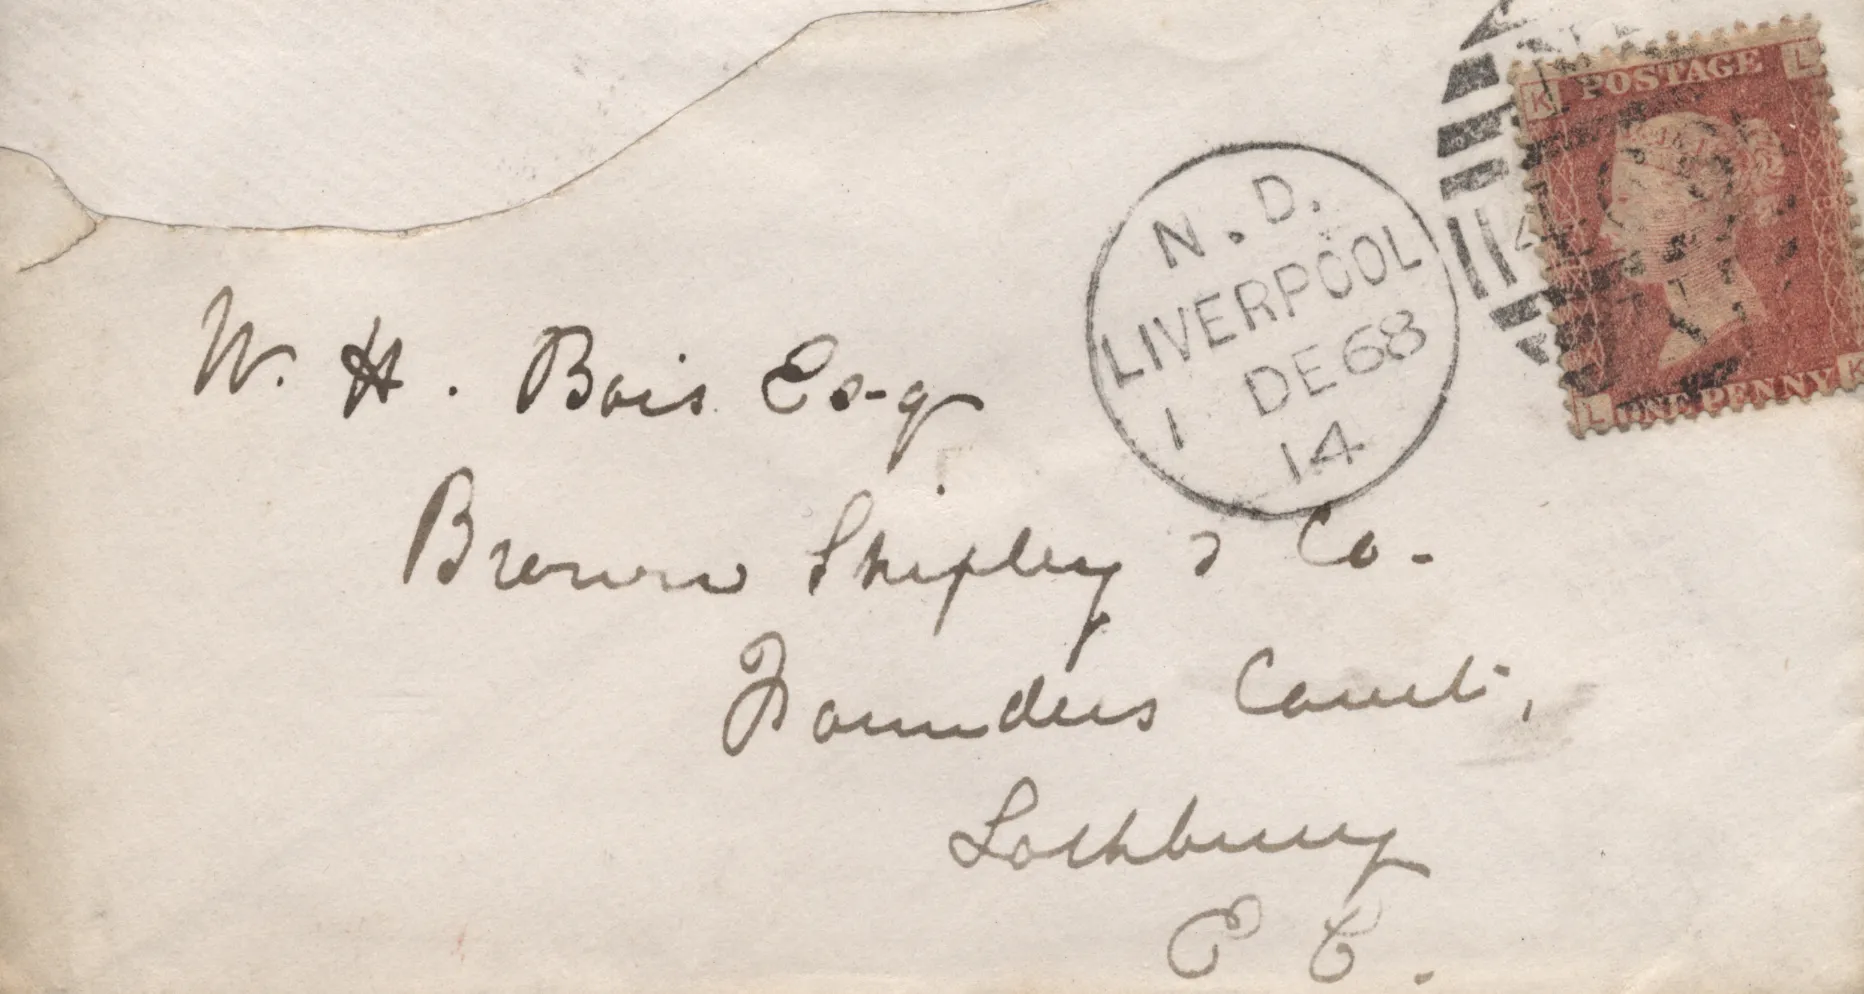 K POSTAGE L
ONE PENNY
L K
N. D.
LIVERPOOL
1 DE 68
14
4
W. H. Bois Esq
Brown Shipley & Co.
Founders Court,
Lothbury
E C.